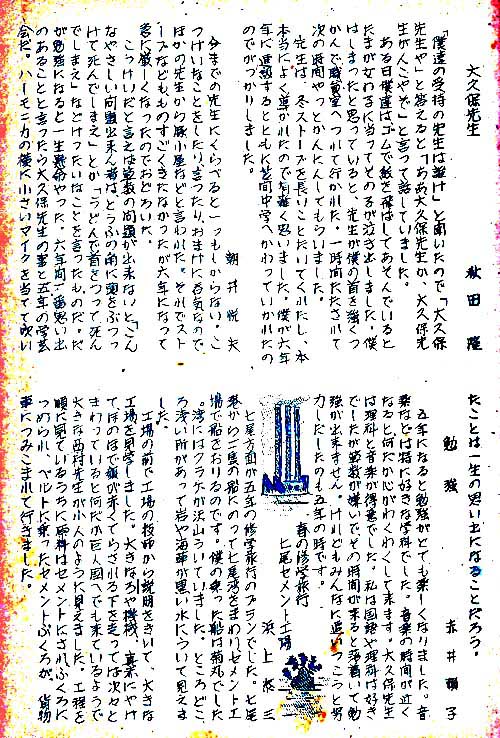 大久保先生
秋田 隆
「僕達の受持の先生は誰け」と聞いたので「大久保
先生や」と答えると「ああ大久保先生か、大久保先
生がんこやぞ」と言って話していました。
ある日僕達はゴムで紙を飛ばしてあそんでいると
たまが女の子に当ってその子が泣き出しました。僕
はしまったと思っていると、先生が僕の首を強くつ
かんで職員室へつれて行かれた。一時間たたされて
次の時間やっとかんにんしてもらいました。
先生は、冬ストーブを長いことたいてくれたし、本も
本当によく書かれたので有難く思いました。僕が六年
年に進級するとともに笠間中学へかわっていかれたの
でがっかりしました。
朝井 悦夫
今までの先生にくらべると一つもしからない。こ
つけいなことをしたり言ったりおまけに呑気なので
ほかの先生から豚小屋などと言われた。それでスト
ーブなどもものすごくきたなかったが六年になって
急に厳しくなったのでおどろいた。
こっけいだと言えば算数の問題が出来ないと「こん
なやさしい問題出来ん者は、とうふの角に頭をぶつつ
けて死んでしまえ」とか「うどんで首をつって死ん
でしまえ」などけったいなことを言ったものだ。だ
が勉強になると一生懸命やった。六年間一番思い出
のあることと言ったら大久保先生の事と五年の学芸
会だ。ハーモニカの横に小さいマイクを当てて吹い
たことは一生の思い出になることだろう。
勉強
赤井 領子
五年になると勉強がとても楽しくなりました。音
楽などは特に好きな学科でした。音楽の時間が近く
なると何だか心がわくわくして来ます。大久保先生
は理科と音楽が得意でした。私は国語や理科は好き
でしたが算数が嫌いでその時間が来ると落着いて勉
強が出来ません。けれどもみんなに追いつこうと努
力しだしたのも五年の時です。
春の修学旅行
七尾セメント工場
浜上 泰三
七尾方面が五年の修学旅行のプランでした。七尾
港から三隻の船にのって七尾湾をまわりセメント工
場で船をおりるのです。僕の乗った船は菊丸でした
湾にはクラゲが沢山ういていました。ところどこ
ろ浅い所があって岩や海草が黒い水について見えま
した。
工場の前で工場の技師から説明をきいて、大きな
工場を見学しました。大きなろや機械、真赤にやけ
てほのほで顔が赤くてらされる下を走っては次々と
まわっていると何だか巨人国へでも来ているようで
大きな西村先生が小人のように見えました。工程を
順に見ているうちに原料はセメントにされふくろに
つめられ、ベルトに乗ったセメントぶくろが、貨物
車につみこまれて行きました。